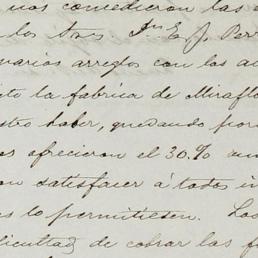 nos concedieron las
los tres Dn E. J. Per
narios arreglos con los au
to la fabrica de Miraflo
stro haber, quedando por
es ofrecieron el 30.% an
on satisfacer á todos in
es lo permitiesen. Las
dificultad de cobrar las f